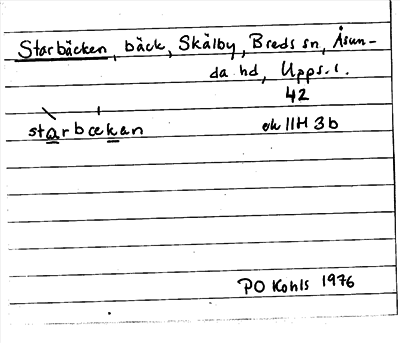 Starbäcken, bäck, Skälby, Breds sn, Åsun-
da hd, Upps. l.
42
starbœkan ek 11H 3b
PO Kohls 1976